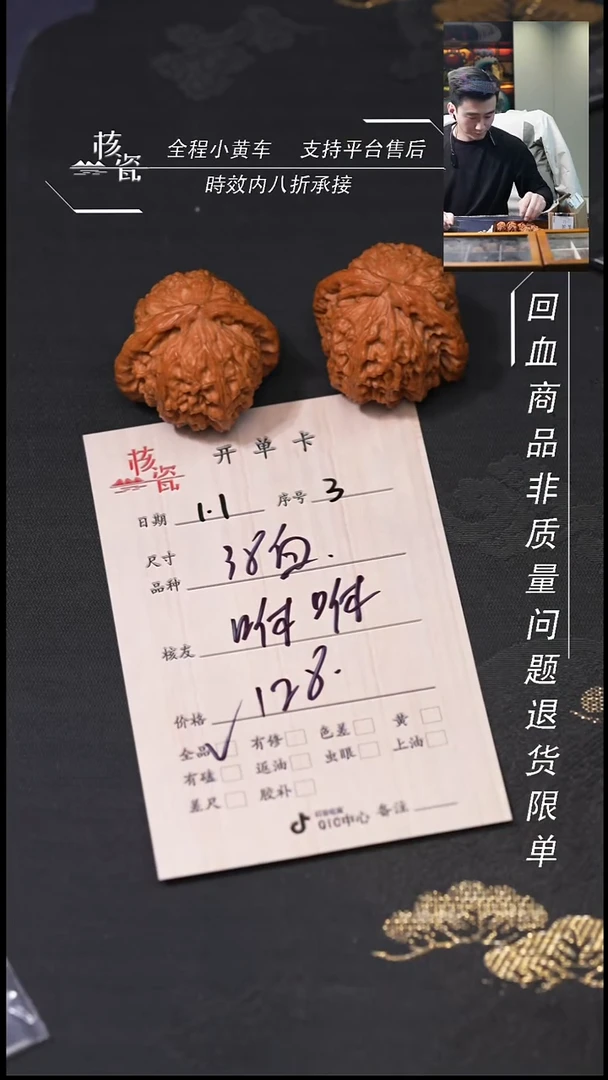 核瓷
全程小黄车 支持平台售后
時效内八折承接
回血商品非质量问题退货限单
核瓷
开单卡
日期 1.1 序号 3
尺寸 38白.
品种
核友 咐咐
价格 128.
全品 有修 色差 黄
有磕 返油 虫眼 上油
差尺 胶补
QIC中心 备注